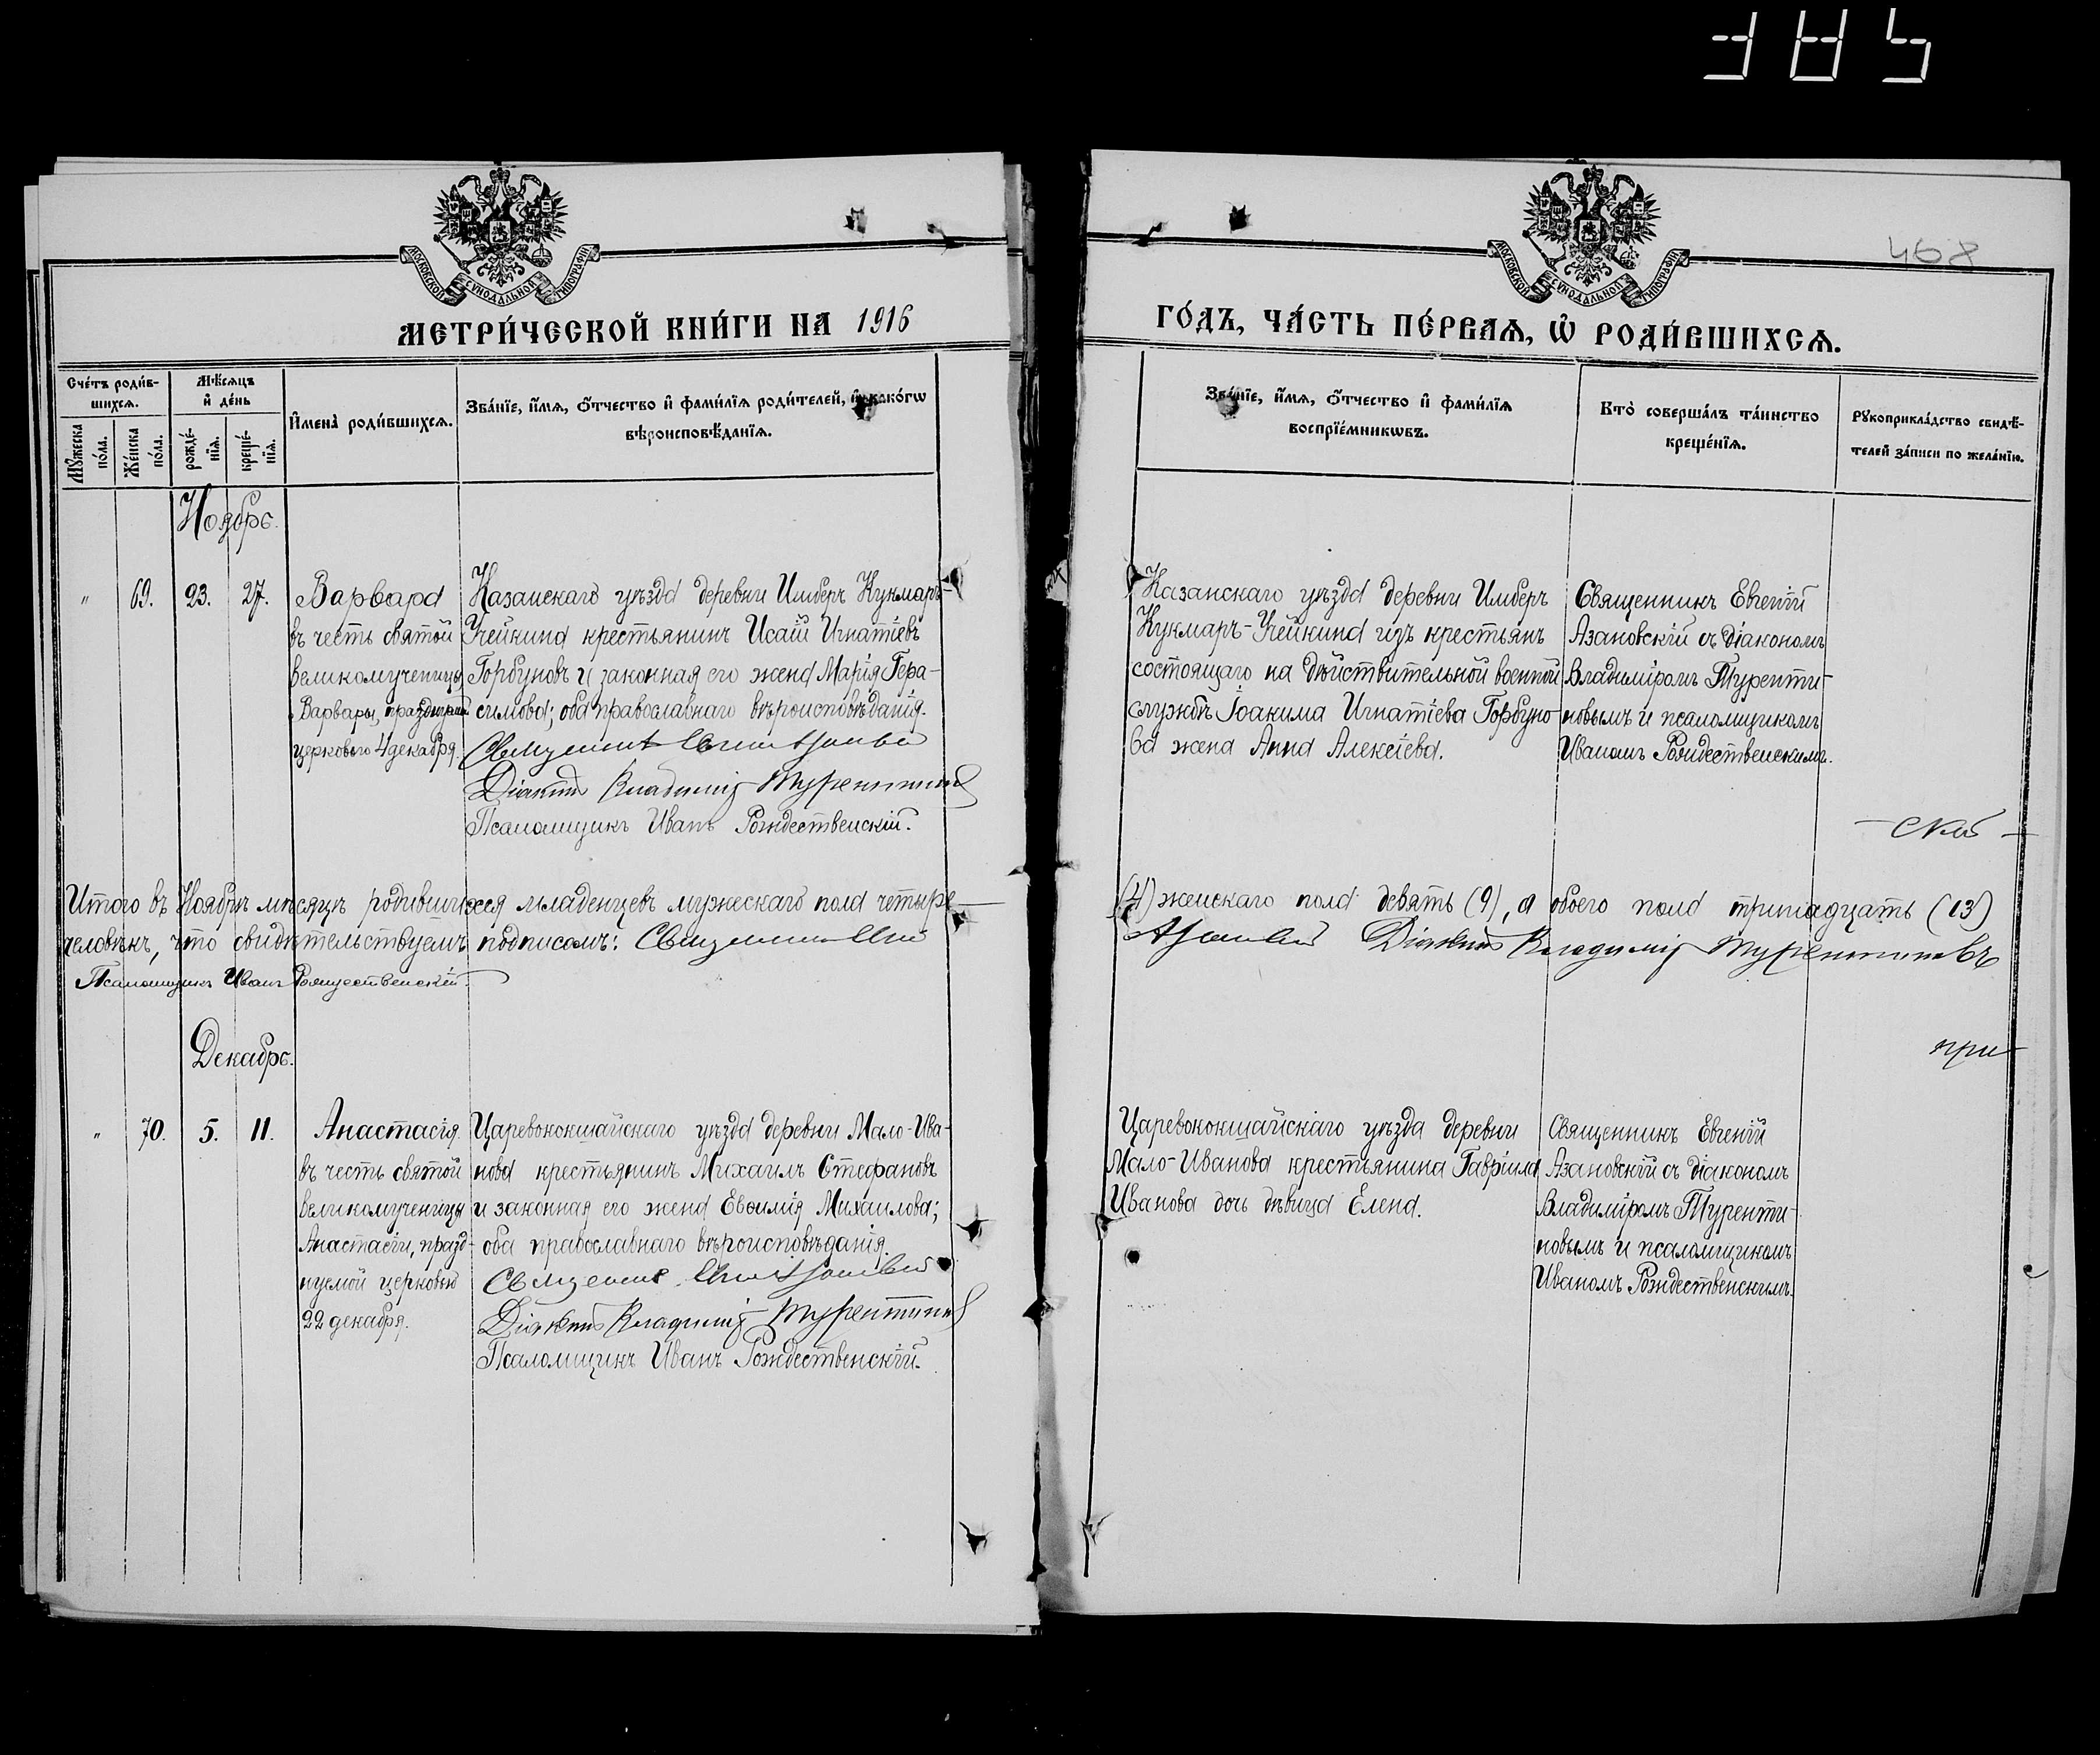 385
468
МОСКОВСКОЙ СѴНОДАЛЬНОЙ ТИПОГРАФІИ
МОСКОВСКОЙ СѴНОДАЛЬНОЙ ТИПОГРАФІИ
МЕТРИ́ЧЕСКОЙ КНИ́ГИ НА 1916
ГО́ДЪ, ЧА́СТЬ ПЕ́РВАѦ, Ѡ҆ РОДИ́ВШИХСѦ.
Сче́тъ роди́в-
шихсѧ.
Мꙋ́жеска по́ла.
Же́нска по́ла.
Мѣ́сѧцъ
и҆ де́нь
рожде́-
нїѧ.
креще́-
нїѧ.
И҆мена̀ роди́вшихсѧ.
Зва́нїе, и҆́мѧ, ѻ҆́тчество и҆ фами́лїѧ роди́телей, и҆ како́гѡ
вѣроисповѣ́данїѧ.
Зва́нїе, и҆́мѧ, ѻ҆́тчество и҆ фами́лїѧ
воспрїе́мникѡвъ.
Кто̀ соверша́лъ та́инство
креще́нїѧ.
Рꙋкоприкла́дство свидѣ́-
телей за́писи по жела́нїю.
Ноябрь.
" 69. 23. 27.
Варвара
въ честь святой
великомученицы
Варвары, празднуемой
церковью 4 декабря.
Казанскаго уѣзда деревни Имберъ Кукмаръ-
Учейкина крестьянинъ Исаій Игнатіевъ
Горбуновъ и законная его жена Марія Гера-
симова; оба православнаго вѣроисповѣданія.
Священникъ Евгеній Азановскій
Діаконъ Владиміръ Турентиновъ
Псаломщикъ Иванъ Рождественскій.
Казанскаго уѣзда деревни Имберъ
Кукмаръ-Учейкина изъ крестьянъ
состоящаго на дѣйствительной военной
службѣ Іоакима Игнатіева Горбуно-
ва жена Анна Алексіева.
Священникъ Евгеній
Азановскій съ діакономъ
Владиміромъ Туренти-
новымъ и псаломщикомъ
Иваномъ Рождественскимъ.
Итого въ Ноябрѣ мѣсяцѣ родившихся младенцевъ мужескаго пола четыре
(4) женскаго пола девять (9), а обоего пола тринадцать (13)
человѣкъ, что свидѣтельствуемъ подписомъ: Священникъ Евгеній
Азановскій Діаконъ Владиміръ Турентиновъ
Псаломщикъ Иванъ Рождественскій.
Декабрь.
при-
" 70. 5. 11.
Анастасія
въ честь святой
великомученицы
Анастасіи, празд-
нуемой церковью
22 декабря.
Царевококшайскаго уѣзда деревни Мало-Ива-
нова крестьянинъ Михаилъ Стефановъ
и законная его жена Евѳимія Михаилова;
оба православнаго вѣроисповѣданія.
Священникъ Евгеній Азановскій
Діаконъ Владиміръ Турентиновъ
Псаломщикъ Иванъ Рождественскій.
Царевококшайскаго уѣзда деревни
Мало-Иванова крестьянина Гавріила
Иванова дочь дѣвица Елена.
Священникъ Евгеній
Азановскій съ діакономъ
Владиміромъ Туренти-
новымъ и псаломщикомъ
Иваномъ Рождественскимъ.